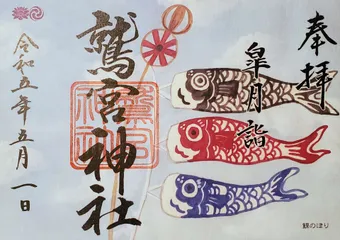 奉拝
皐月詣
鷲宮神社
令和五年五月一日
鯉のぼり